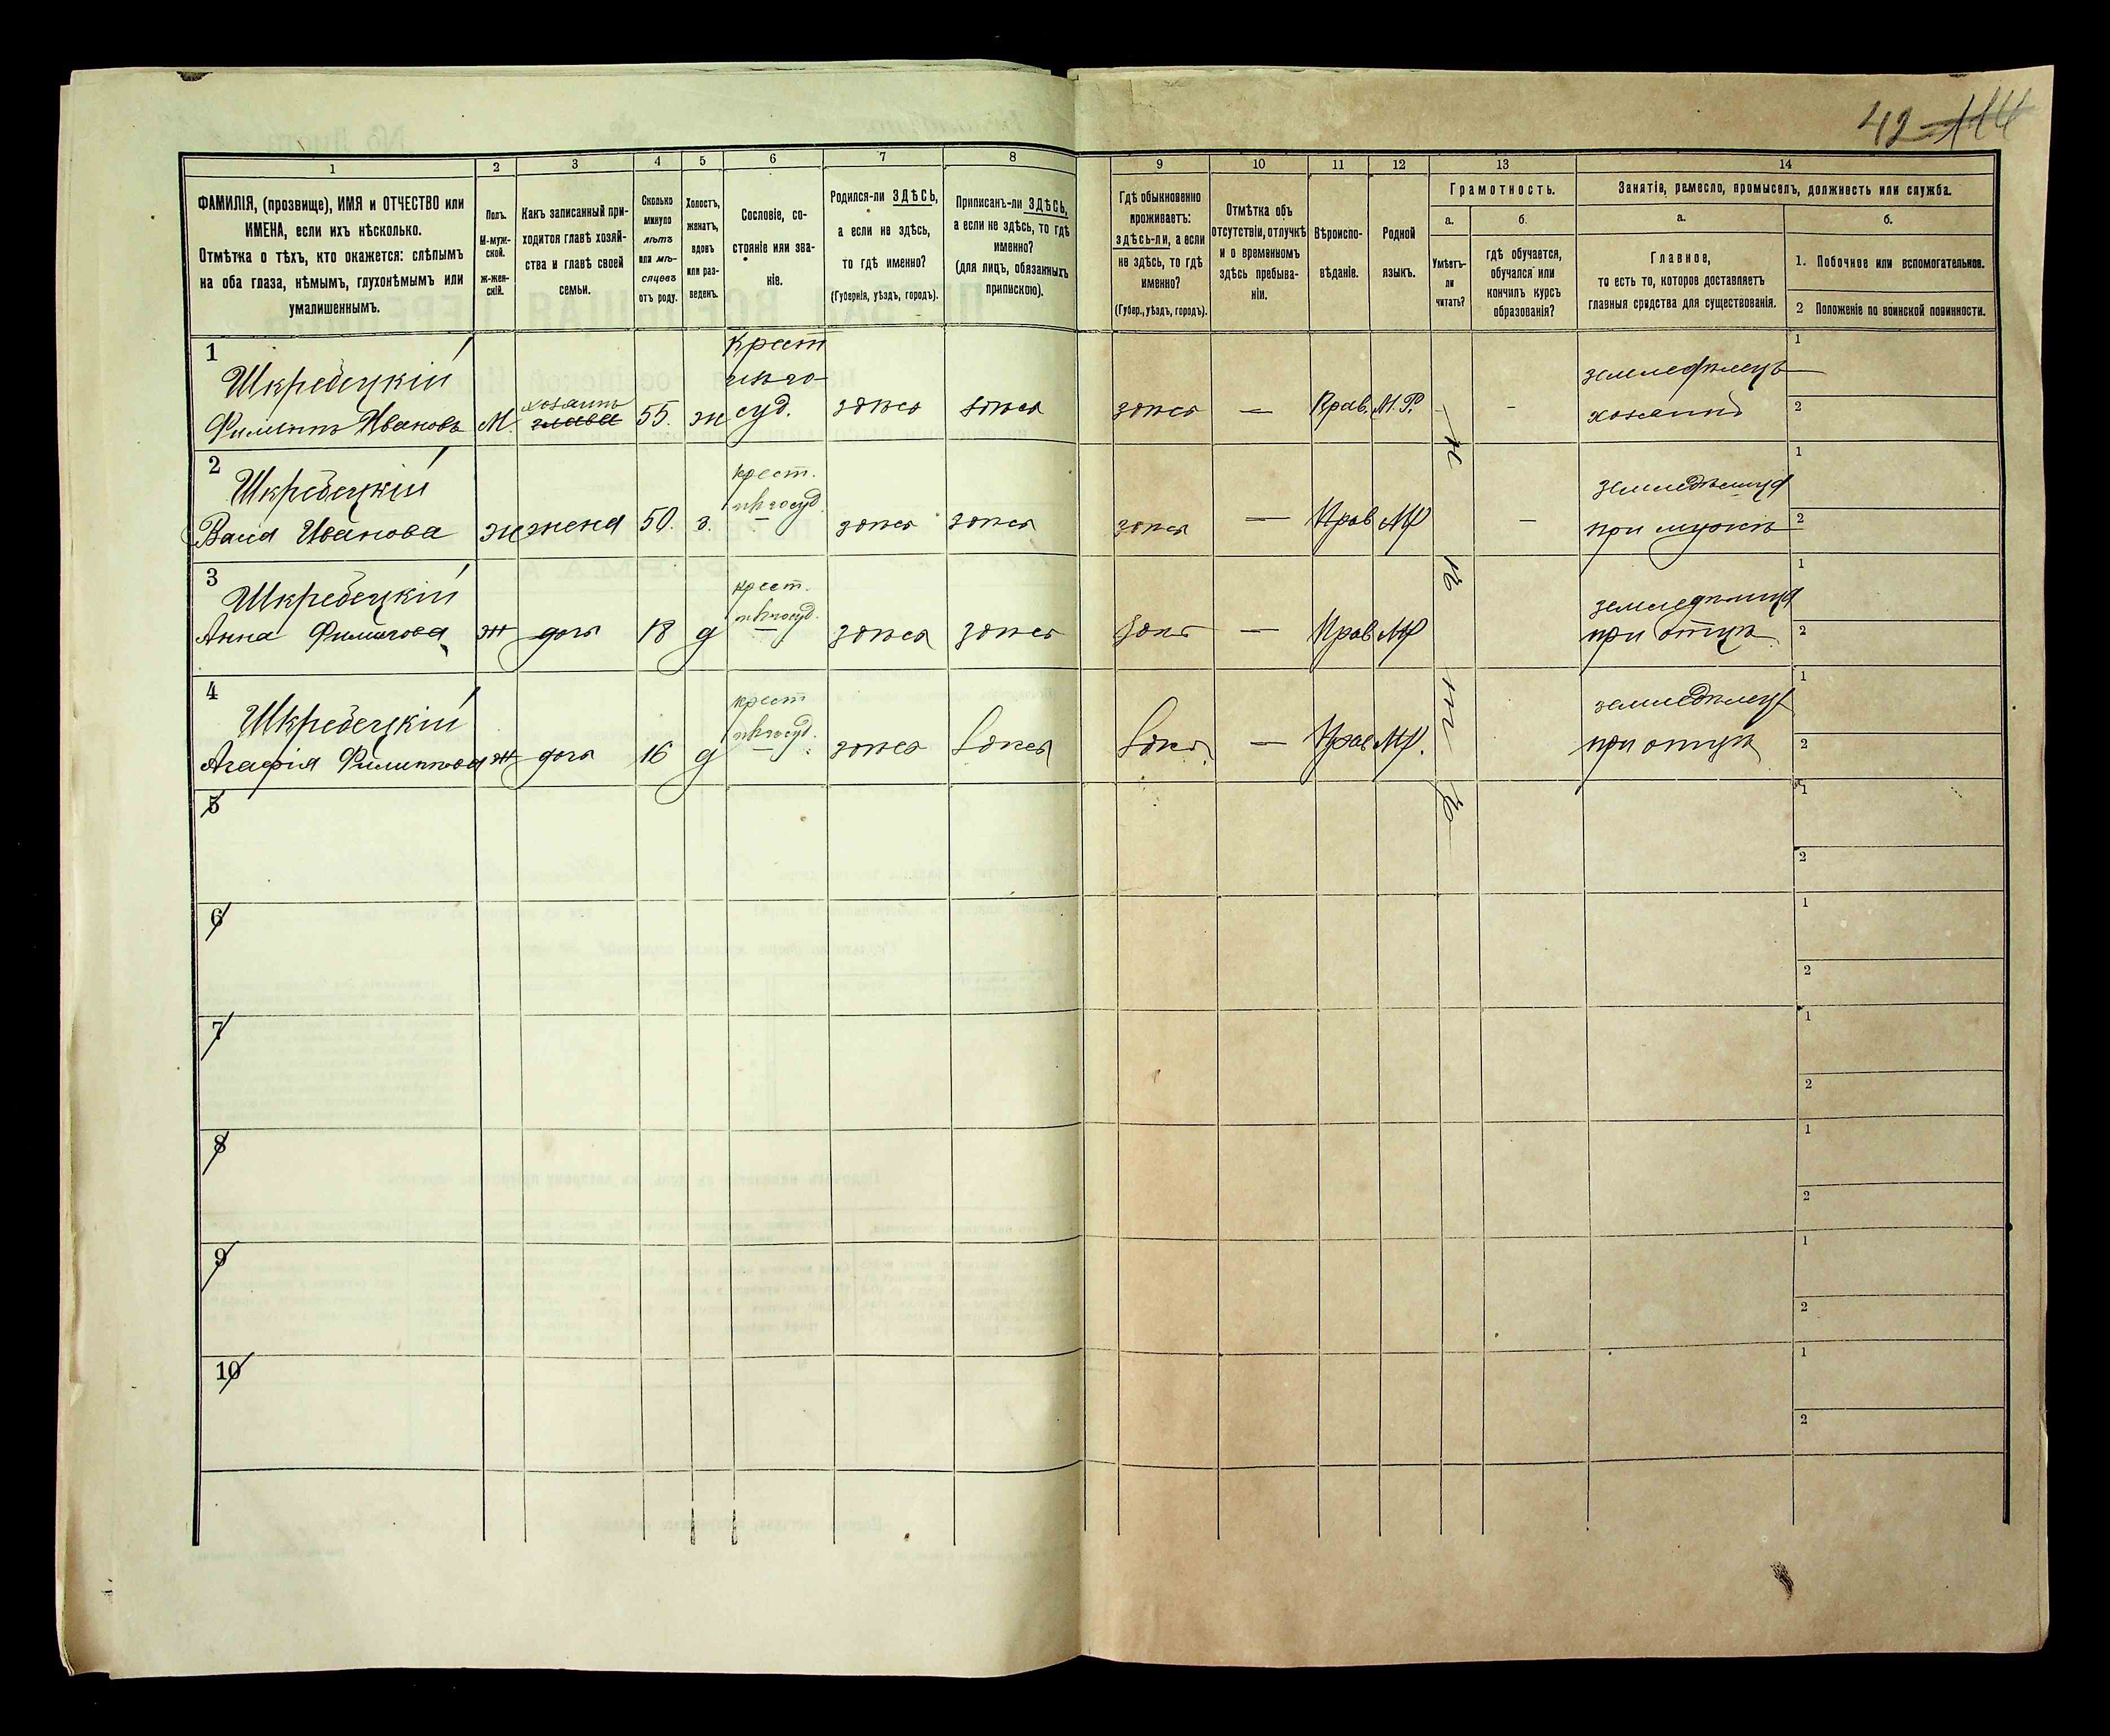 42 114
1
2
3
4
5
6
7
8
9
10
11
12
13
14
ФАМИЛІЯ, (прозвище), ИМЯ и ОТЧЕСТВО или
ИМЕНА, если ихъ нѣсколько.
Отмѣтка о тѣхъ, кто окажется: слѣпымъ
на оба глаза, нѣмымъ, глухонѣмымъ или
умалишеннымъ.
Полъ.
М-муж-
ской.
ж-жен-
скій.
Какъ записанный при-
ходится главѣ хозяй-
ства и главѣ своей
семьи.
Сколько
минуло
лѣтъ
или мѣ-
сяцевъ
отъ роду.
Холостъ,
женатъ,
вдовъ
или раз-
веденъ.
Сословіе, со-
стояніе или зва-
ніе.
Родился-ли ЗДѢСЬ,
а если не здѣсь,
то гдѣ именно?
(Губернія, уѣздъ, городъ).
Приписанъ-ли ЗДѢСЬ,
а если не здѣсь, то гдѣ
именно?
(для лицъ, обязанныхъ
припискою).
Гдѣ обыкновенно
проживаетъ:
здѣсь-ли, а если
не здѣсь, то гдѣ
именно?
(Губер., уѣздъ, городъ).
Отмѣтка объ
отсутствіи, отлучкѣ
и о временномъ
здѣсь пребыва-
ніи.
Вѣроиспо-
вѣданіе.
Родной
языкъ.
Грамотность.
а.
Умѣетъ-
ли
читать?
б.
гдѣ обучается,
обучался или
кончилъ курсъ
образованія?
Занятіе, ремесло, промыселъ, должность или служба.
а.
Главное,
то есть то, которое доставляетъ
главныя средства для существованія.
б.
1. Побочное или вспомогательное.
2 Положеніе по воинской повинности.
1
Шкребецкій
Филиппъ Ивановъ М. хозяинъ глава 55. ж крест изъ го- суд. здѣсь здѣсь здѣсь — Прав. М.Р. — – земледѣлецъ хозяинъ
1
2
2
Шкребецкій
Иванова ж жена 50. з. крест. изъ госуд. здѣсь здѣсь здѣсь — Прав МР – земледѣлица при мужѣ
1
2
3
Шкребецкій
Анна Филиппова ж дочь 18 д крест. изъ госуд. здѣсь здѣсь здѣсь — Прав МР земледѣлица при отцѣ
1
2
4
Шкребецкій
Агафія Филиппова ж дочь 16 д крест изъ госуд. здѣсь здѣсь здѣсь — Прав МР. при отцѣ
1
2
нѣтъ
5
1
2
6
1
2
7
1
2
8
1
2
9
1
2
10
1
2